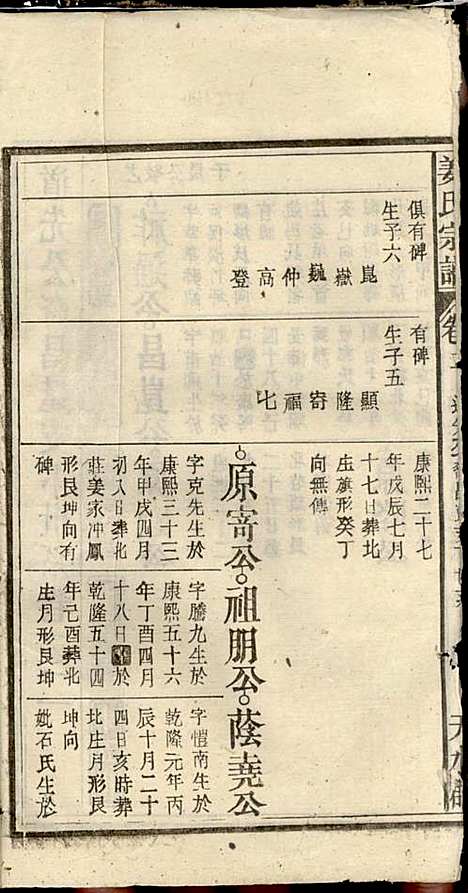 姜氏宗譜
卷
俱有碑
生子六
崑
嶽
巍
仲
高
登
有碑
生子五
顯
隆
寄
福
七
康熙二十七
年戊辰七月
十七日葬北
庄旗形癸丁
向無傳
原寄公
字克先生於
康熙三十三
年甲戌四月
初八日葬北
莊姜家冲鳳
形艮坤向有
碑
祖朋公
字騰九生於
康熙五十六
年丁酉四月
十八日 於
乾隆五十四
年己酉葬北
生月形艮坤
蔭堯公
字愷南生於
乾隆元年丙
辰十月二十
四日亥時葬
北庄月形艮
坤向
妣石氏生於